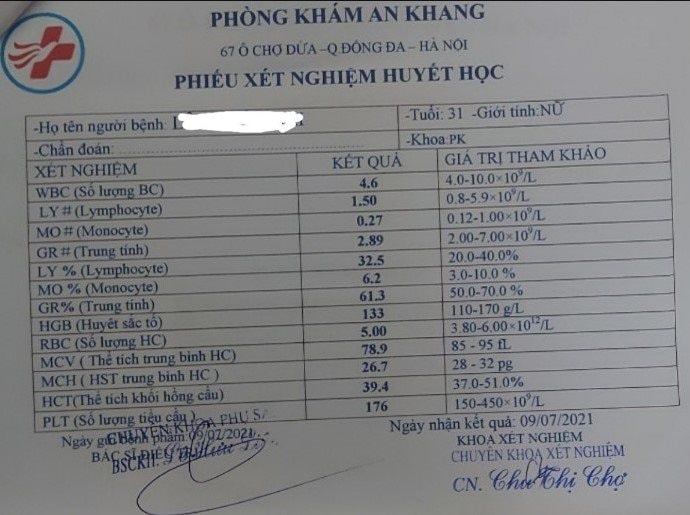 PHÒNG KHÁM AN KHANG
67 Ô CHỢ DỪA –Q ĐỐNG ĐA – HÀ NỘI
PHIẾU XÉT NGHIỆM HUYẾT HỌC
-Họ tên người bệnh: -Tuổi: 31 -Giới tính:NỮ
-Chẩn đoán: -Khoa PK
XÉT NGHIỆM KẾT QUẢ GIÁ TRỊ THAM KHẢO
WBC (Số lượng BC) 4.6 4.0-10.0×10⁹/L
LY # (Lymphocyte) 1.50 0.8-5.9×10⁹/L
MO # (Monocyte) 0.27 0.12-1.00×10⁹/L
GR # (Trung tính) 2.89 2.00-7.00×10⁹/L
LY % (Lymphocyte) 32.5 20.0-40.0%
MO % (Monocyte) 6.2 3.0-10.0 %
GR% (Trung tính) 61.3 50.0-70.0 %
HGB (Huyết sắc tố) 133 110-170 g/L
RBC (Số lượng HC) 5.00 3.80-6.00×10¹²/L
MCV ( Thể tích trung bình HC) 78.9 85 - 95 fL
MCH ( HST trung bình HC ) 26.7 28 - 32 pg
HCT(Thể tích khối hồng cầu) 39.4 37.0-51.0%
PLT (Số lượng tiểu cầu ) 176 150-450×10⁹/L
Ngày nhận kết quả: 09/07/2021
Ngày phẩm 09/07/2021
CHUYÊN KHOA PHỤ S
KHOA XÉT NGHIỆM
BÁC SĨ
CHUYÊN KHOA XÉT NGHIỆM
BSCKII.
CN. Chu Thị Chợ